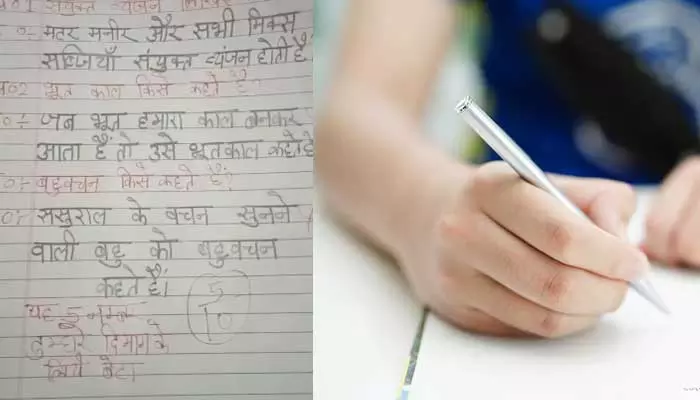 संयुक्त व्यंजन
मटर मनीर और सभी मिक्स
सब्जियाँ संयुक्त व्यंजन होती है
भूत काल किसे कहते है?
जब भूत हमारा काल बनकर
आता हैं तो उसे भूतकाल कहते है
बहुवचन किसे कहते हैं?
ससुराल के वचन सुनने
वाली बहु को बहुवचन
कहते हैं।
5
10
यह 5 नम्बर
तुम्हारे दिमाग के
लिये बेटा